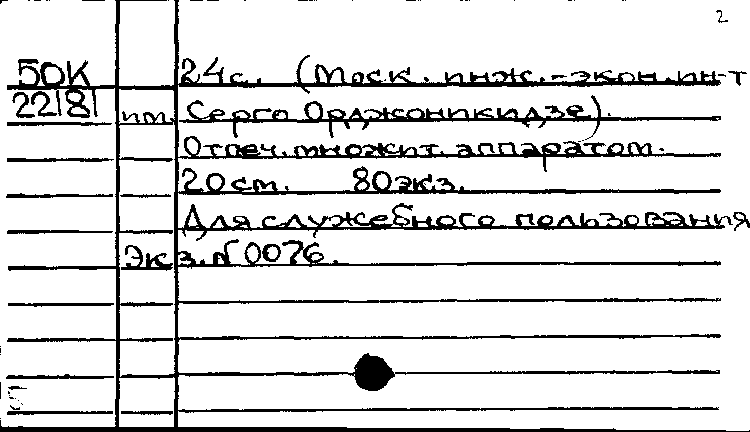 2
50К 24с. (Моск. инж.-экон.ин-т
22181 им. Серго Орджоникидзе).
Отпеч. множит. аппаратом.
20см. 80экз.
Для служебного пользования
Экз.N0076.
5